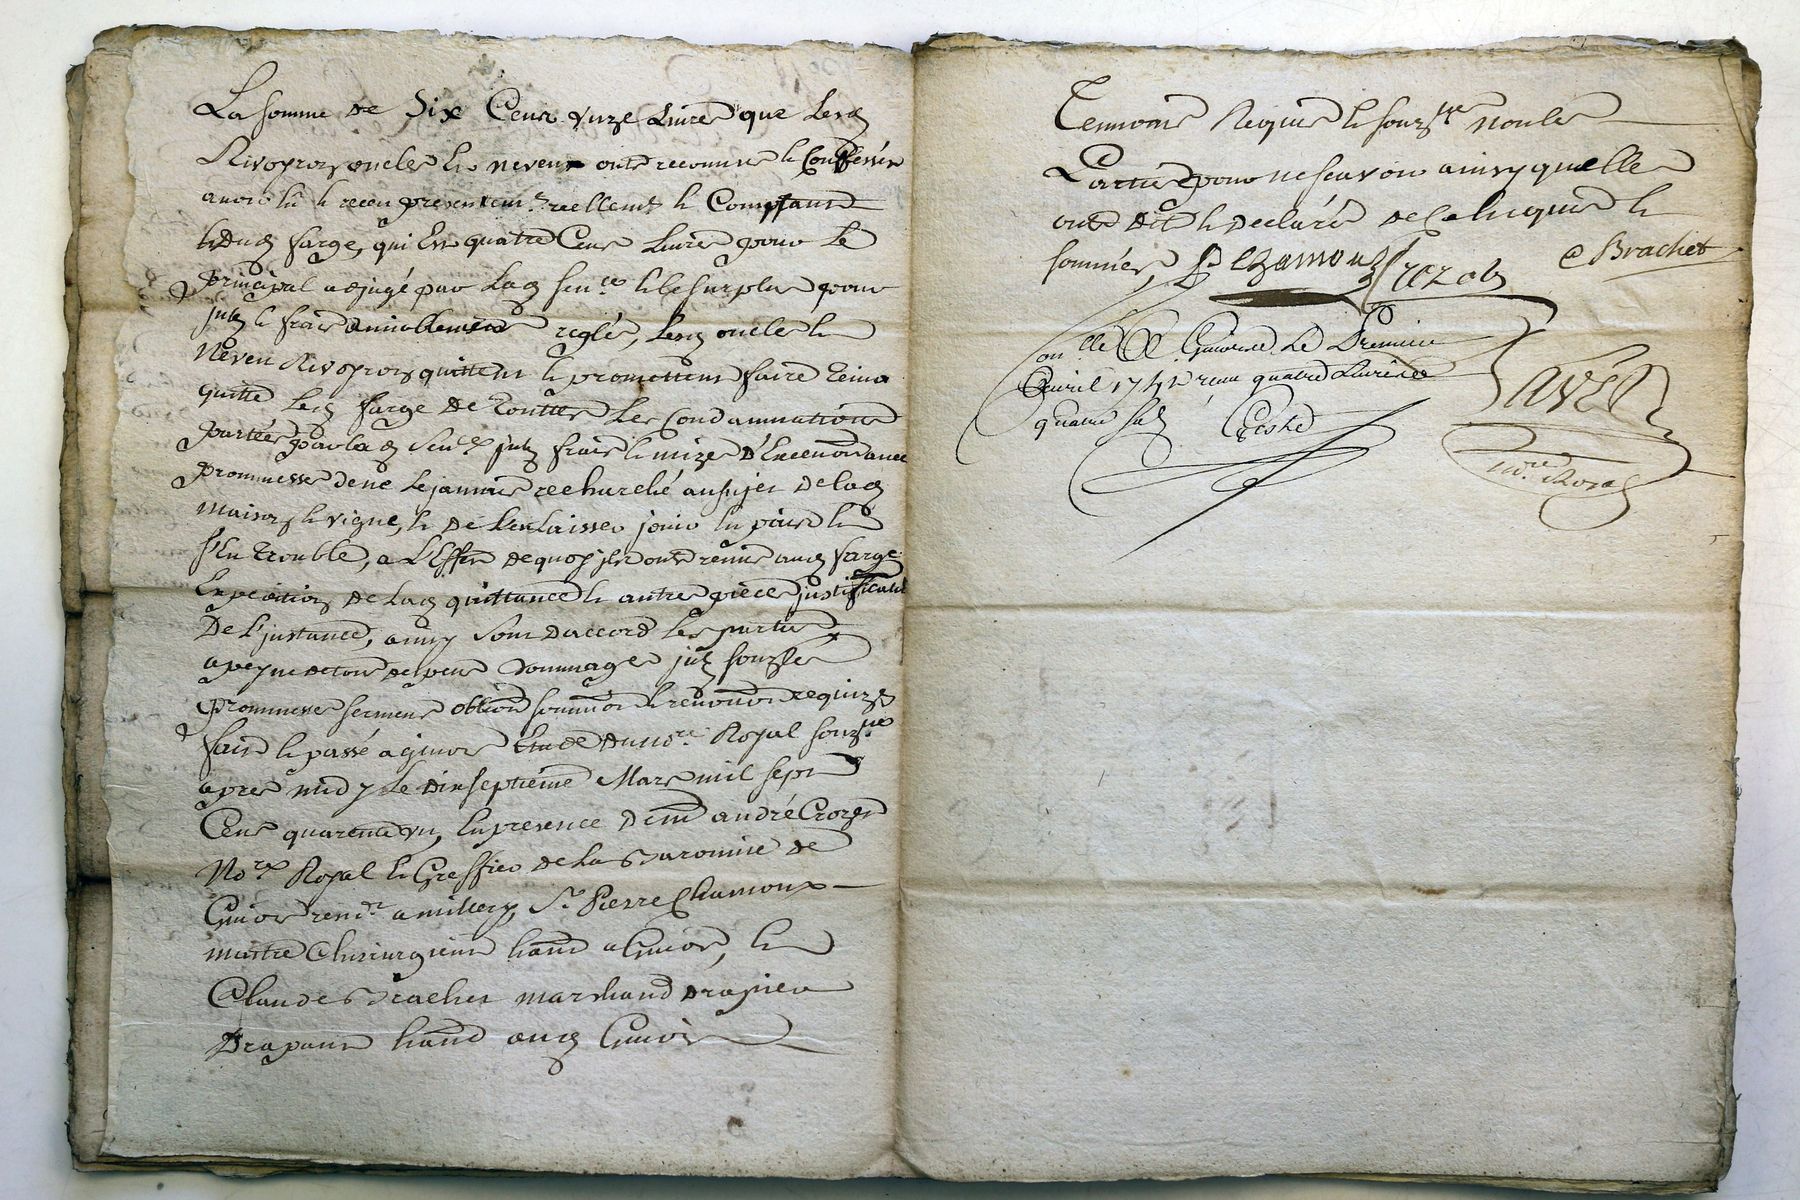 La somme de Six Cens unze Livres que lesd
Rivoyron oncle et neveux ont reconnus et Confessés
avoir eü et receu presentemt. reellemt et Comptant
dud farge, qui Est quatre Cens Livres pour Le
principal adjugé par Lad sence. et le surplus pour
frais amiablement reglés, Lesd oncle et
Neveu Rivoyron quittent et promettent faire tenir
quitte Led farge de touttes Les Condamnations
portées par lad Sence. frais et mize d'Execution avec
promesse de ne Le jamais recherché au sujet de lad
maison et vigne, et de L'en Laisser jouir en paix et
s'En trouble, a L'Effet de quoy ils ont remis aud farge
Expedition de Lad quittance et autres pieces justificatives
De L'instance, ainsy Sont d'accord Les parties
a peyne de tous depens dommages
promesse serment oblion soumion et renonon requizes
fait et passé a givors Etude du nore. Royal souzné
apres midy Le dixseptieme Mars mil sept
Cens quarente un, En presence de me andré Crozet
Nore. Royal et Greffier de La Baronnie de
Givors resid. a millery, Sr. Pierre Chamoux
maitre Chirurgien habit a Givors, et
Claude Brachet marchand drapier
Drapant habit aud Givors
Temoins Requis et souznes non les
Parties pour ne scavoir ainsy quelles
ont dit et declarés de Ce Enquises et
sommées, P Chamoux Crozet C Brachet
Conlle a Givors Le Premier
Avril 1741 receu quatre Livres
quatre sols
nore. Royal